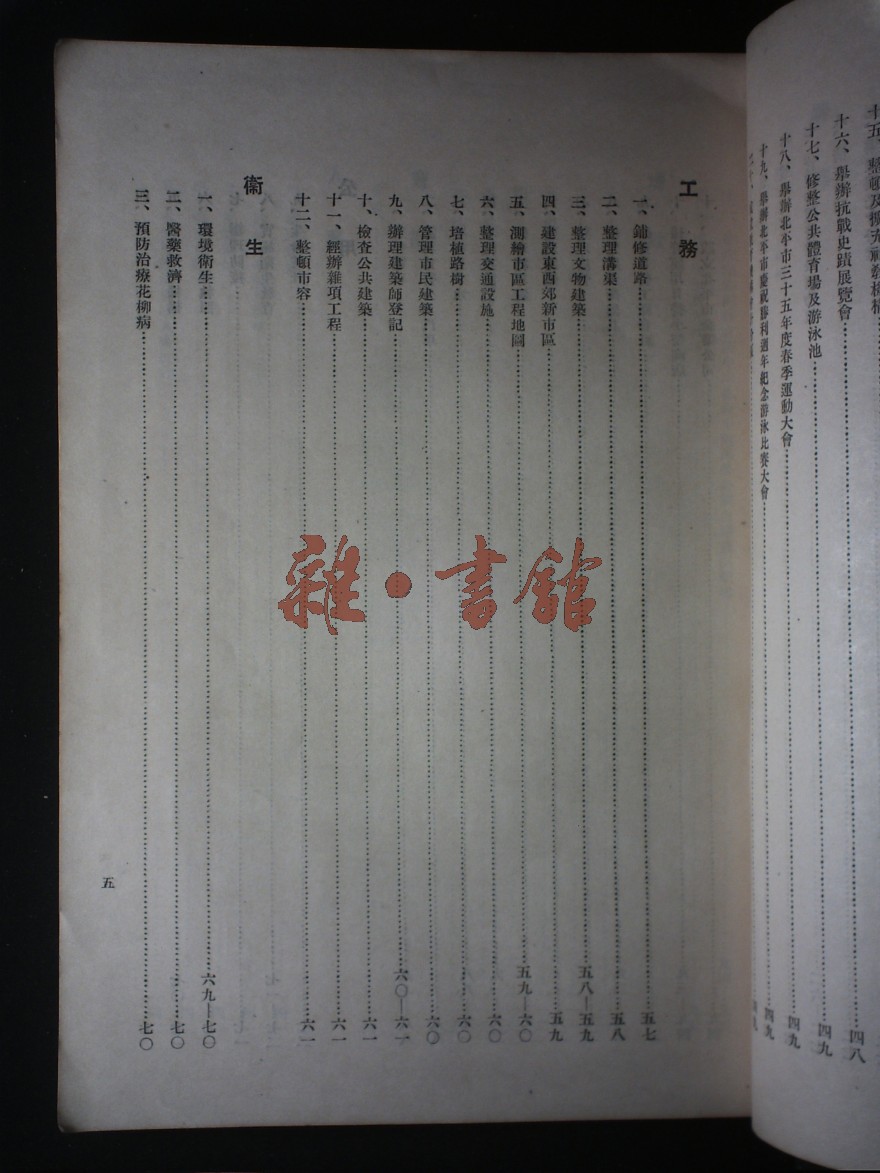 十六、舉辦抗戰史蹟展覽會……四八
十七、修整公共體育場及游泳池……四九
十八、舉辦北平市三十五年度春季運動大會……四九
十九、舉辦北平市慶祝勝利週年紀念游泳比賽大會……四九
工務
一、鋪修道路……五七
二、整理溝渠……五八
三、整理文物建築……五八—五九
四、建設東西郊新市區……五九
五、測繪市區工程地圖……五九—六〇
六、整理交通設施……六〇
七、培植路樹……六〇
八、管理市民建築……六〇
九、辦理建築師登記……六〇—六一
十、檢查公共建築……六一
十一、經辦雜項工程……六一
十二、整頓市容……六一
衞生
一、環境衞生……六九—七〇
二、醫藥救濟……七〇
三、預防治療花柳病……七〇
五
雜·書館